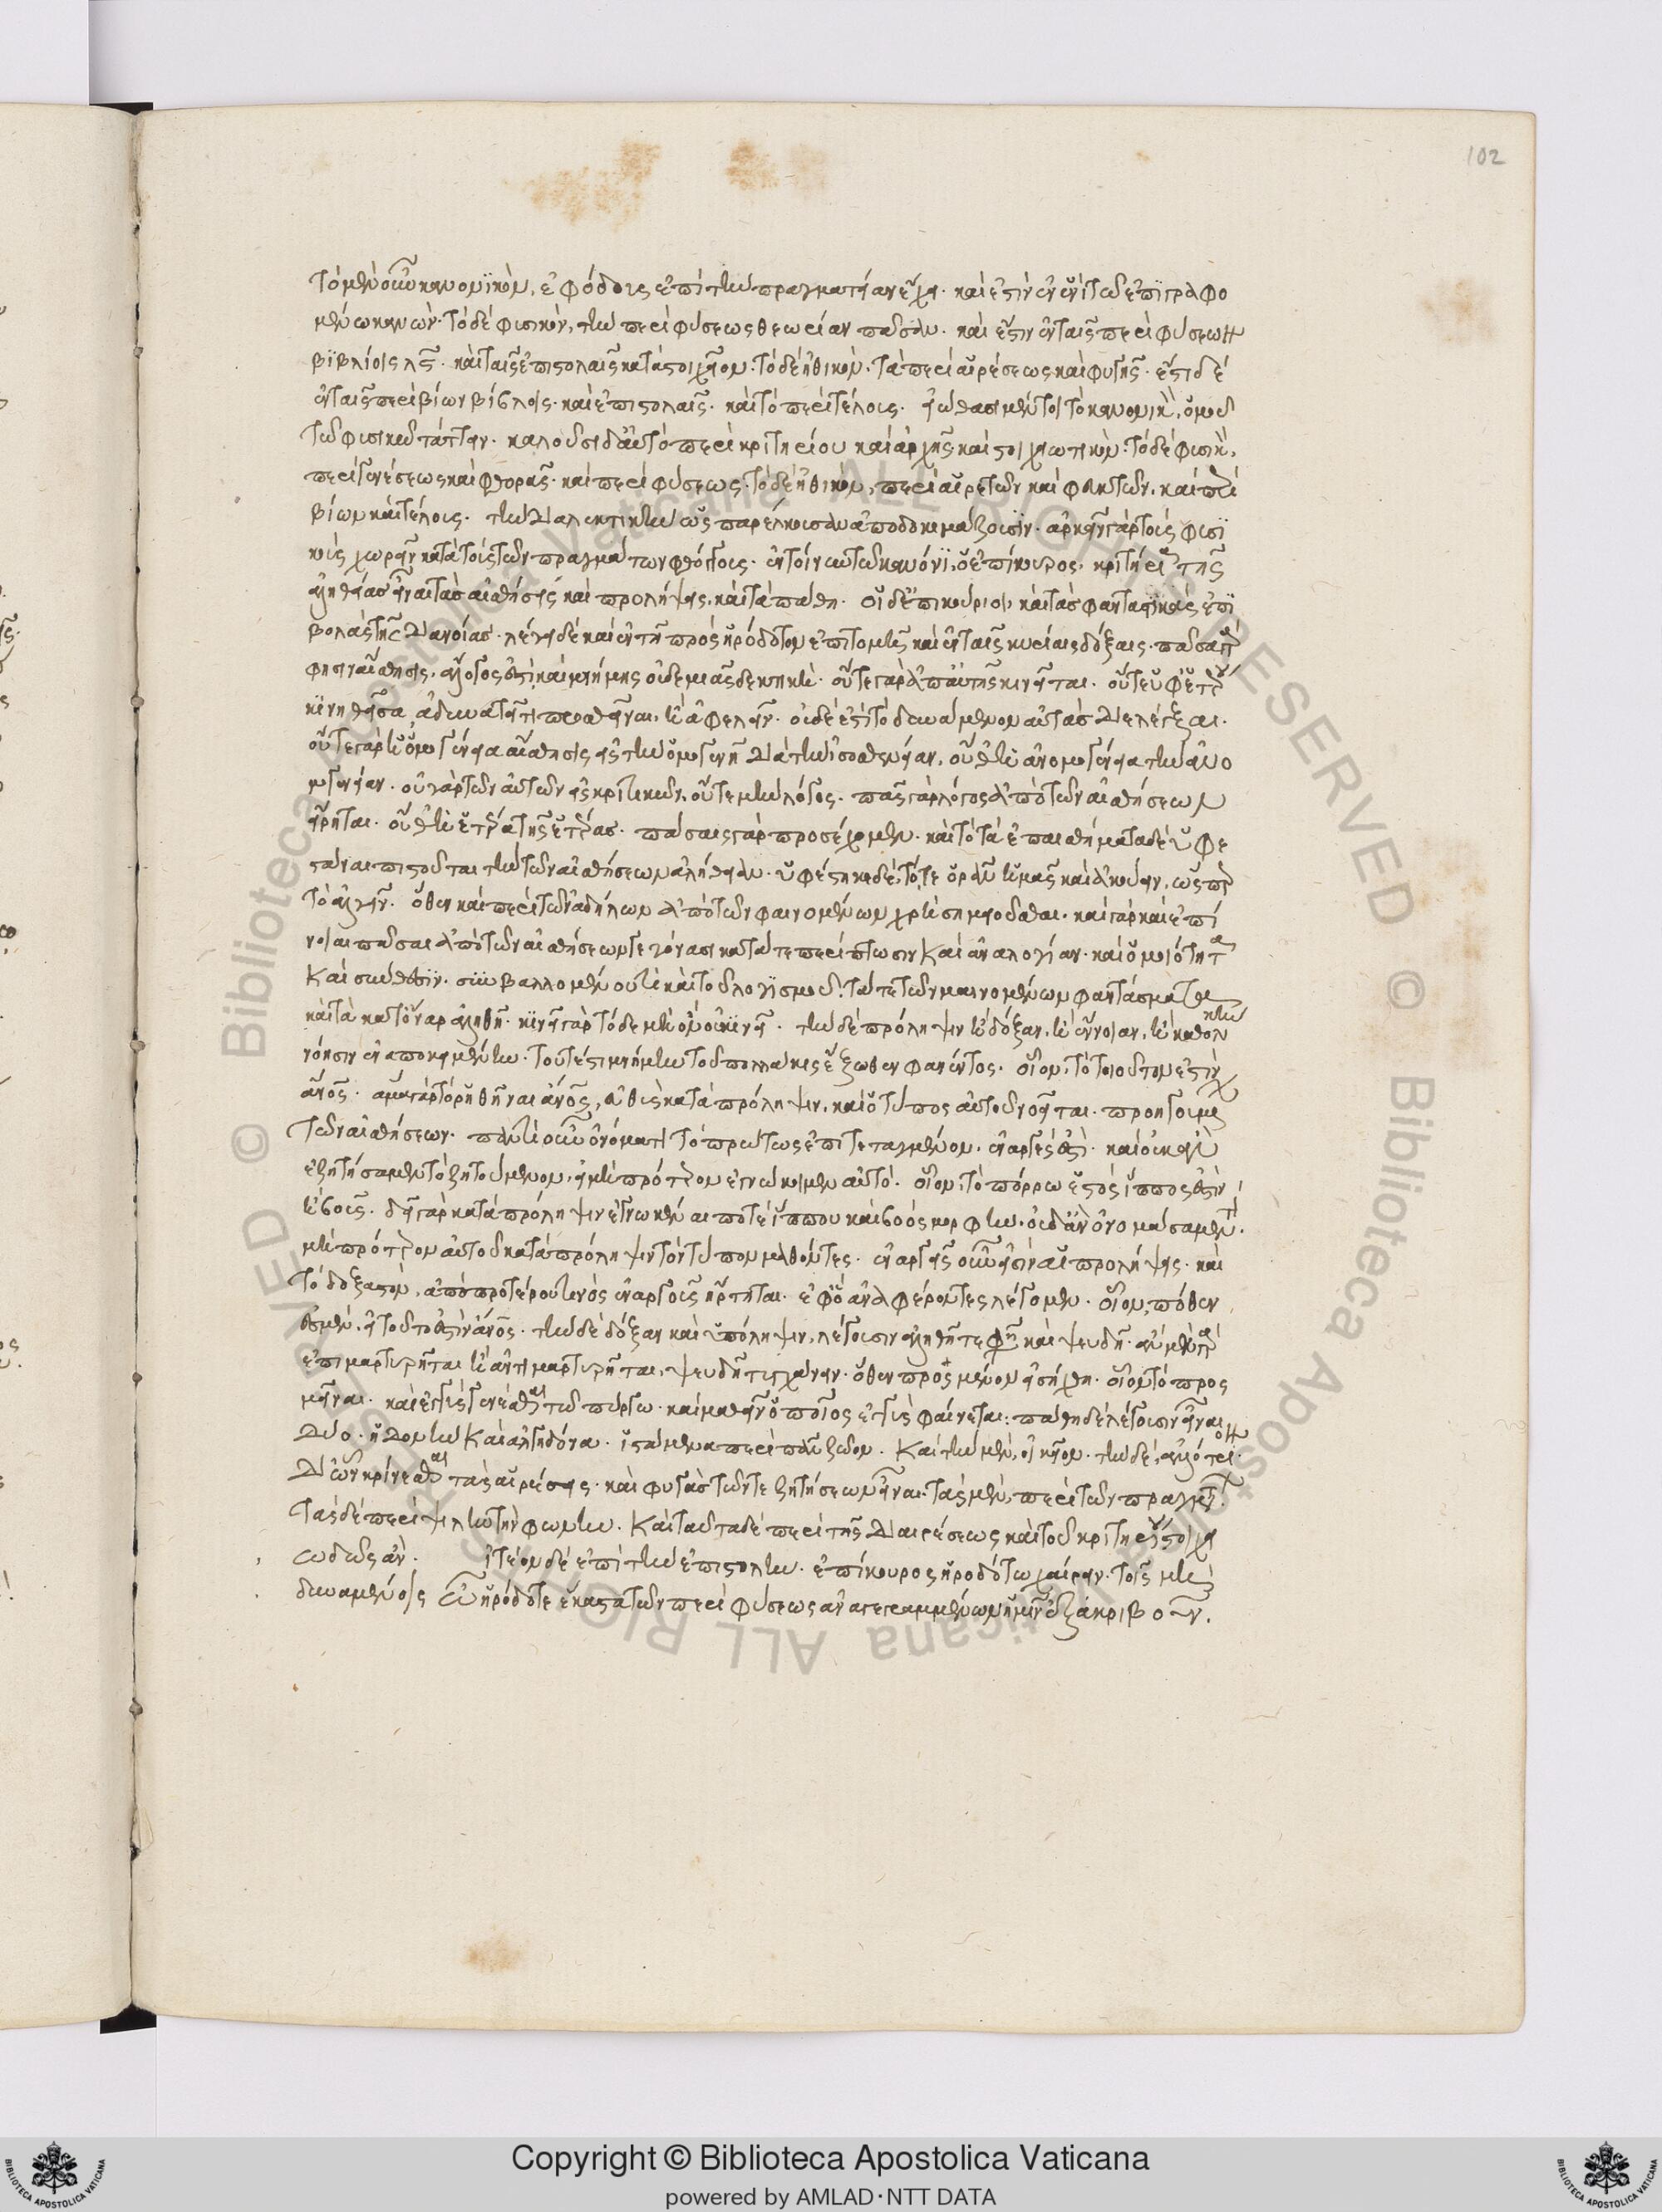 102
τὸ μὲν οὖν κανονικὸν, ἐφόδους ἐπὶ τὴν πραγματείαν ἔχει· καὶ ἔστιν ἐν ἑνὶ τῷ ἐπιγραφο
μένῳ κανών· τὸ δὲ φυσικὸν, τὴν περὶ φύσεως θεωρίαν πᾶσαν· καὶ ἔστιν ἐν ταῖς περὶ φύσεως
βίβλοις λζ· καὶ ταῖς ἐπιστολαῖς κατὰ στοιχεῖον· τὸ δὲ ἠθικὸν, τὰ περὶ αἱρέσεως καὶ φυγῆς· ἔστι δὲ
ἐν ταῖς περὶ βίων βίβλοις· καὶ ἐπιστολαῖς· καὶ τὸ περὶ τέλους· εἰώθασι μέντοι τὸ κανονικὸν, ὁμοῦ
τῷ φυσικῷ τάττειν· καλοῦσι δ' αὐτὸ περὶ κριτηρίου καὶ ἀρχῆς καὶ στοιχειωτικόν· τὸ δὲ φυσικὸν,
περὶ γενέσεως καὶ φθορᾶς· καὶ περὶ φύσεως· τὸ δὲ ἠθικὸν, περὶ αἱρετῶν καὶ φευκτῶν, καὶ περὶ
βίων καὶ τέλους· τὴν διαλεκτικὴν ὡς παρέλκουσαν ἀποδοκιμάζουσιν· ἀρκεῖν γὰρ τοὺς φυσι
κοὺς χωρεῖν κατὰ τοὺς τῶν πραγμάτων φθόγγους· ἐν τοίνυν τῷ κανόνι, ὁ ἐπίκουρος, κριτήρια τῆς
ἀληθείας εἶναι τὰς αἰσθήσεις καὶ προλήψεις, καὶ τὰ πάθη· οἱ δ' ἐπικούρειοι, καὶ τὰς φανταστικὰς ἐπι
βολὰς τῆς διανοίας· λέγει δὲ καὶ ἐν τῇ πρὸς ἡρόδοτον ἐπιτομῇ καὶ ἐν ταῖς κυρίαις δόξαις· πᾶσα γάρ
φησιν αἴσθησις, ἄλογός ἐστι καὶ μνήμης οὐδεμιᾶς δεκτική· οὔτε γὰρ ὑπ' αὐτῆς κινεῖται· οὔτε ὑφ' ἑτέρου
κινηθεῖσα, ἀδυνατεῖ τι προσθεῖναι, ἢ ἀφελεῖν· οὐδὲ ἔστι τὸ δυνάμενον αὐτὰς διελέγξαι·
οὔτε γὰρ ἡ ὁμογένεια αἴσθησις τὴν ὁμογενῆ διὰ τὴν ἰσοσθένειαν, οὔθ' ἡ ἀνομογένεια τὴν ἀνο
μογένειαν· οὐ γὰρ τῶν αὐτῶν εἰσὶ κριτικαί, οὔτε μὴν λόγος· πᾶς γὰρ λόγος ἀπὸ τῶν αἰσθήσεων
εἴρηται· οὔθ' ἡ ἑτέρα τῆς ἑτέρας· πάσαις γὰρ προσέχομεν· καὶ τὸ τὰ ἐπαισθήματα δὲ ὑφε
στάναι πιστοῦται τὴν τῶν αἰσθήσεων ἀλήθειαν· ὑφέστηκε δὲ, τό τε ὁρᾶν ἡμᾶς καὶ ἀκούειν, ὥσπερ
τὸ ἀλγεῖν· ὅθεν καὶ περὶ τῶν ἀδήλων ἀπὸ τῶν φαινομένων χρὴ σημειοῦσθαι· καὶ γὰρ καὶ ἐπί
νοιαι πᾶσαι ἀπὸ τῶν αἰσθήσεων γεγόνασι κατά τε περίπτωσιν καὶ ἀναλογίαν· καὶ ὁμοιότητα
καὶ σύνθεσιν· συμβαλλομένου τι καὶ τοῦ λογισμοῦ· τά τε τῶν μαινομένων φαντάσματα
καὶ τὰ κατ' ὄναρ ἀληθῆ· κινεῖ γὰρ τὸ δὲ μὴ ὂν οὐ κινεῖ· τὴν δὲ πρόληψιν ἢ δόξαν, ἢ ἔννοιαν, ἢ καθολικὴν
νόησιν ἐναποκειμένην· τουτέστι μνήμην τοῦ πολλάκις ἔξωθεν φανέντος· οἷον, τὸ τοιοῦτόν ἐστιν
ἄνος· ἅμα γὰρ τὸ ῥηθῆναι ἄνος, εὐθὺς κατὰ πρόληψιν, καὶ ὁ τύπος αὐτοῦ νοεῖται· προηγουμένων
τῶν αἰσθήσεων· παντὶ οὖν ὀνόματι τὸ πρώτως ἐπιτεταγμένον, ἐναργές ἐστι· καὶ οὐκ ἂν
ἐζητήσαμεν τὸ ζητούμενον, εἰ μὴ πρότερον ἐγνώκειμεν αὐτό· οἷον, τὸ πόρρω ἑστὼς ἵππος ἐστὶν
ἢ βοῦς· δεῖ γὰρ κατὰ πρόληψιν ἐγνωκέναι ποτὲ ἵππου καὶ βοὸς μορφήν· οὐδ' ἂν ὠνομάσαμέν τι
μὴ πρότερον αὐτοῦ κατὰ πρόληψιν τὸν τύπον μαθόντες· ἐναργεῖς οὖν εἰσὶν αἱ προλήψεις· καὶ
τὸ δοξαστὸν, ἀπὸ προτέρου τινὸς ἐναργοῦς ἤρτηται· ἐφ' ὃ ἀναφέροντες λέγομεν· οἷον, πόθεν
ἴσμεν, εἰ τοῦτό ἐστιν ἄνος· τὴν δὲ δόξαν καὶ ὑπόληψιν, λέγουσιν ἀληθῆ τέ φησι καὶ ψευδῆ· ἂν μὲν
ἐπιμαρτυρῆται ἢ ἀντιμαρτυρῆται, ψευδῆ τυγχάνειν· ὅθεν προσμένον εἰσήχθη· οἷον τὸ προς
μεῖναι· καὶ ἐγγὺς γενέσθαι τῷ πύργῳ· καὶ μαθεῖν ὁποῖος ἐγγὺς φαίνεται· πάθη δὲ λέγουσιν εἶναι
δύο· ἡδονὴν καὶ ἀλγηδόνα· ἱστάμενα περὶ πᾶν ζῷον· καὶ τὴν μὲν, οἰκεῖον· τὴν δὲ, ἀλλότριον·
δι' ὧν κρίνεσθαι τὰς αἱρέσεις· καὶ φυγάς· τῶν τε ζητήσεων εἶναι· τὰς μὲν, περὶ τῶν πραγμάτων·
τὰς δὲ περὶ ψιλὴν τὴν φωνήν· καὶ ταῦτα δὲ περὶ τῆς διαιρέσεως καὶ τοῦ κριτηρίου στοιχει
ωδῶς ἄν· ἰτέον δὲ ἐπὶ τὴν ἐπιστολήν· ἐπίκουρος ἡροδότῳ χαίρειν· τοῖς μὴ
δυναμένοις ὦ ἡρόδοτε ἕκαστα τῶν περὶ φύσεως ἀναγεγραμμένων ἡμῖν ἐξακριβοῦν.
Copyright © Biblioteca Apostolica Vaticana
powered by AMLAD·NTT DATA
© Biblioteca Apostolica Vaticana ALL RIGHTS RESERVED